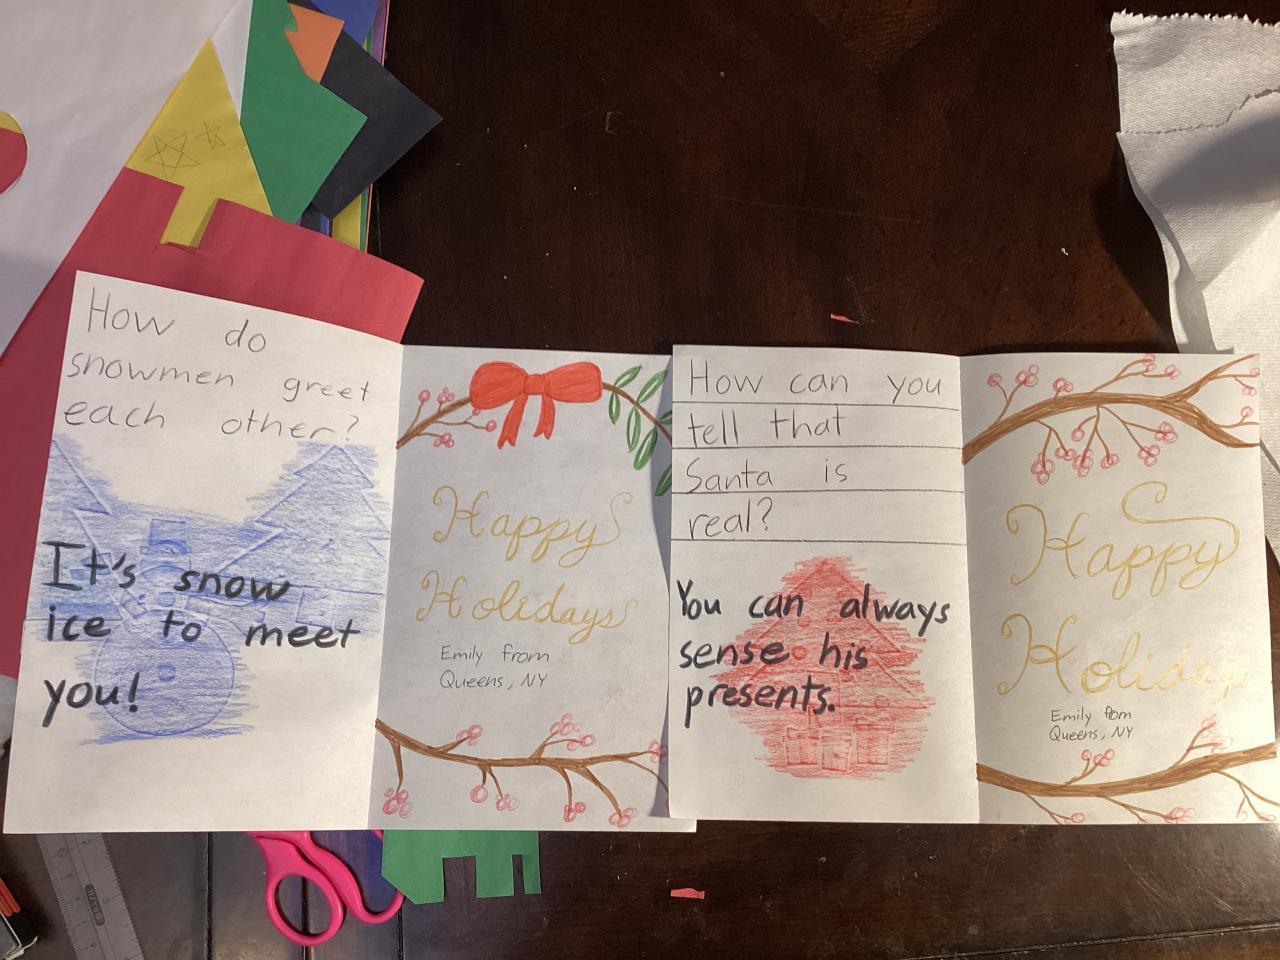 How do
snowmen greet
each other?
It's snow
ice to meet
you!
Happy
Holidays
Emily from
Queens, NY
How can you
tell that
Santa is
real?
You can always
sense his
presents.
Happy
Holidays
Emily from
Queens, NY